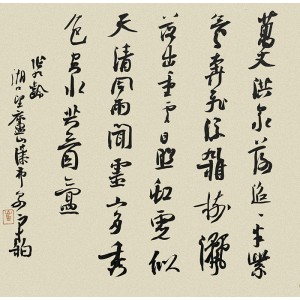 萬丈洪泉落迢々半紫
氛奔飛流雜樹灑
落出重雲日照虹霓似
天清風雨聞靈山多秀
色空水共氤氳
張九齡
湖口望廬山瀑布